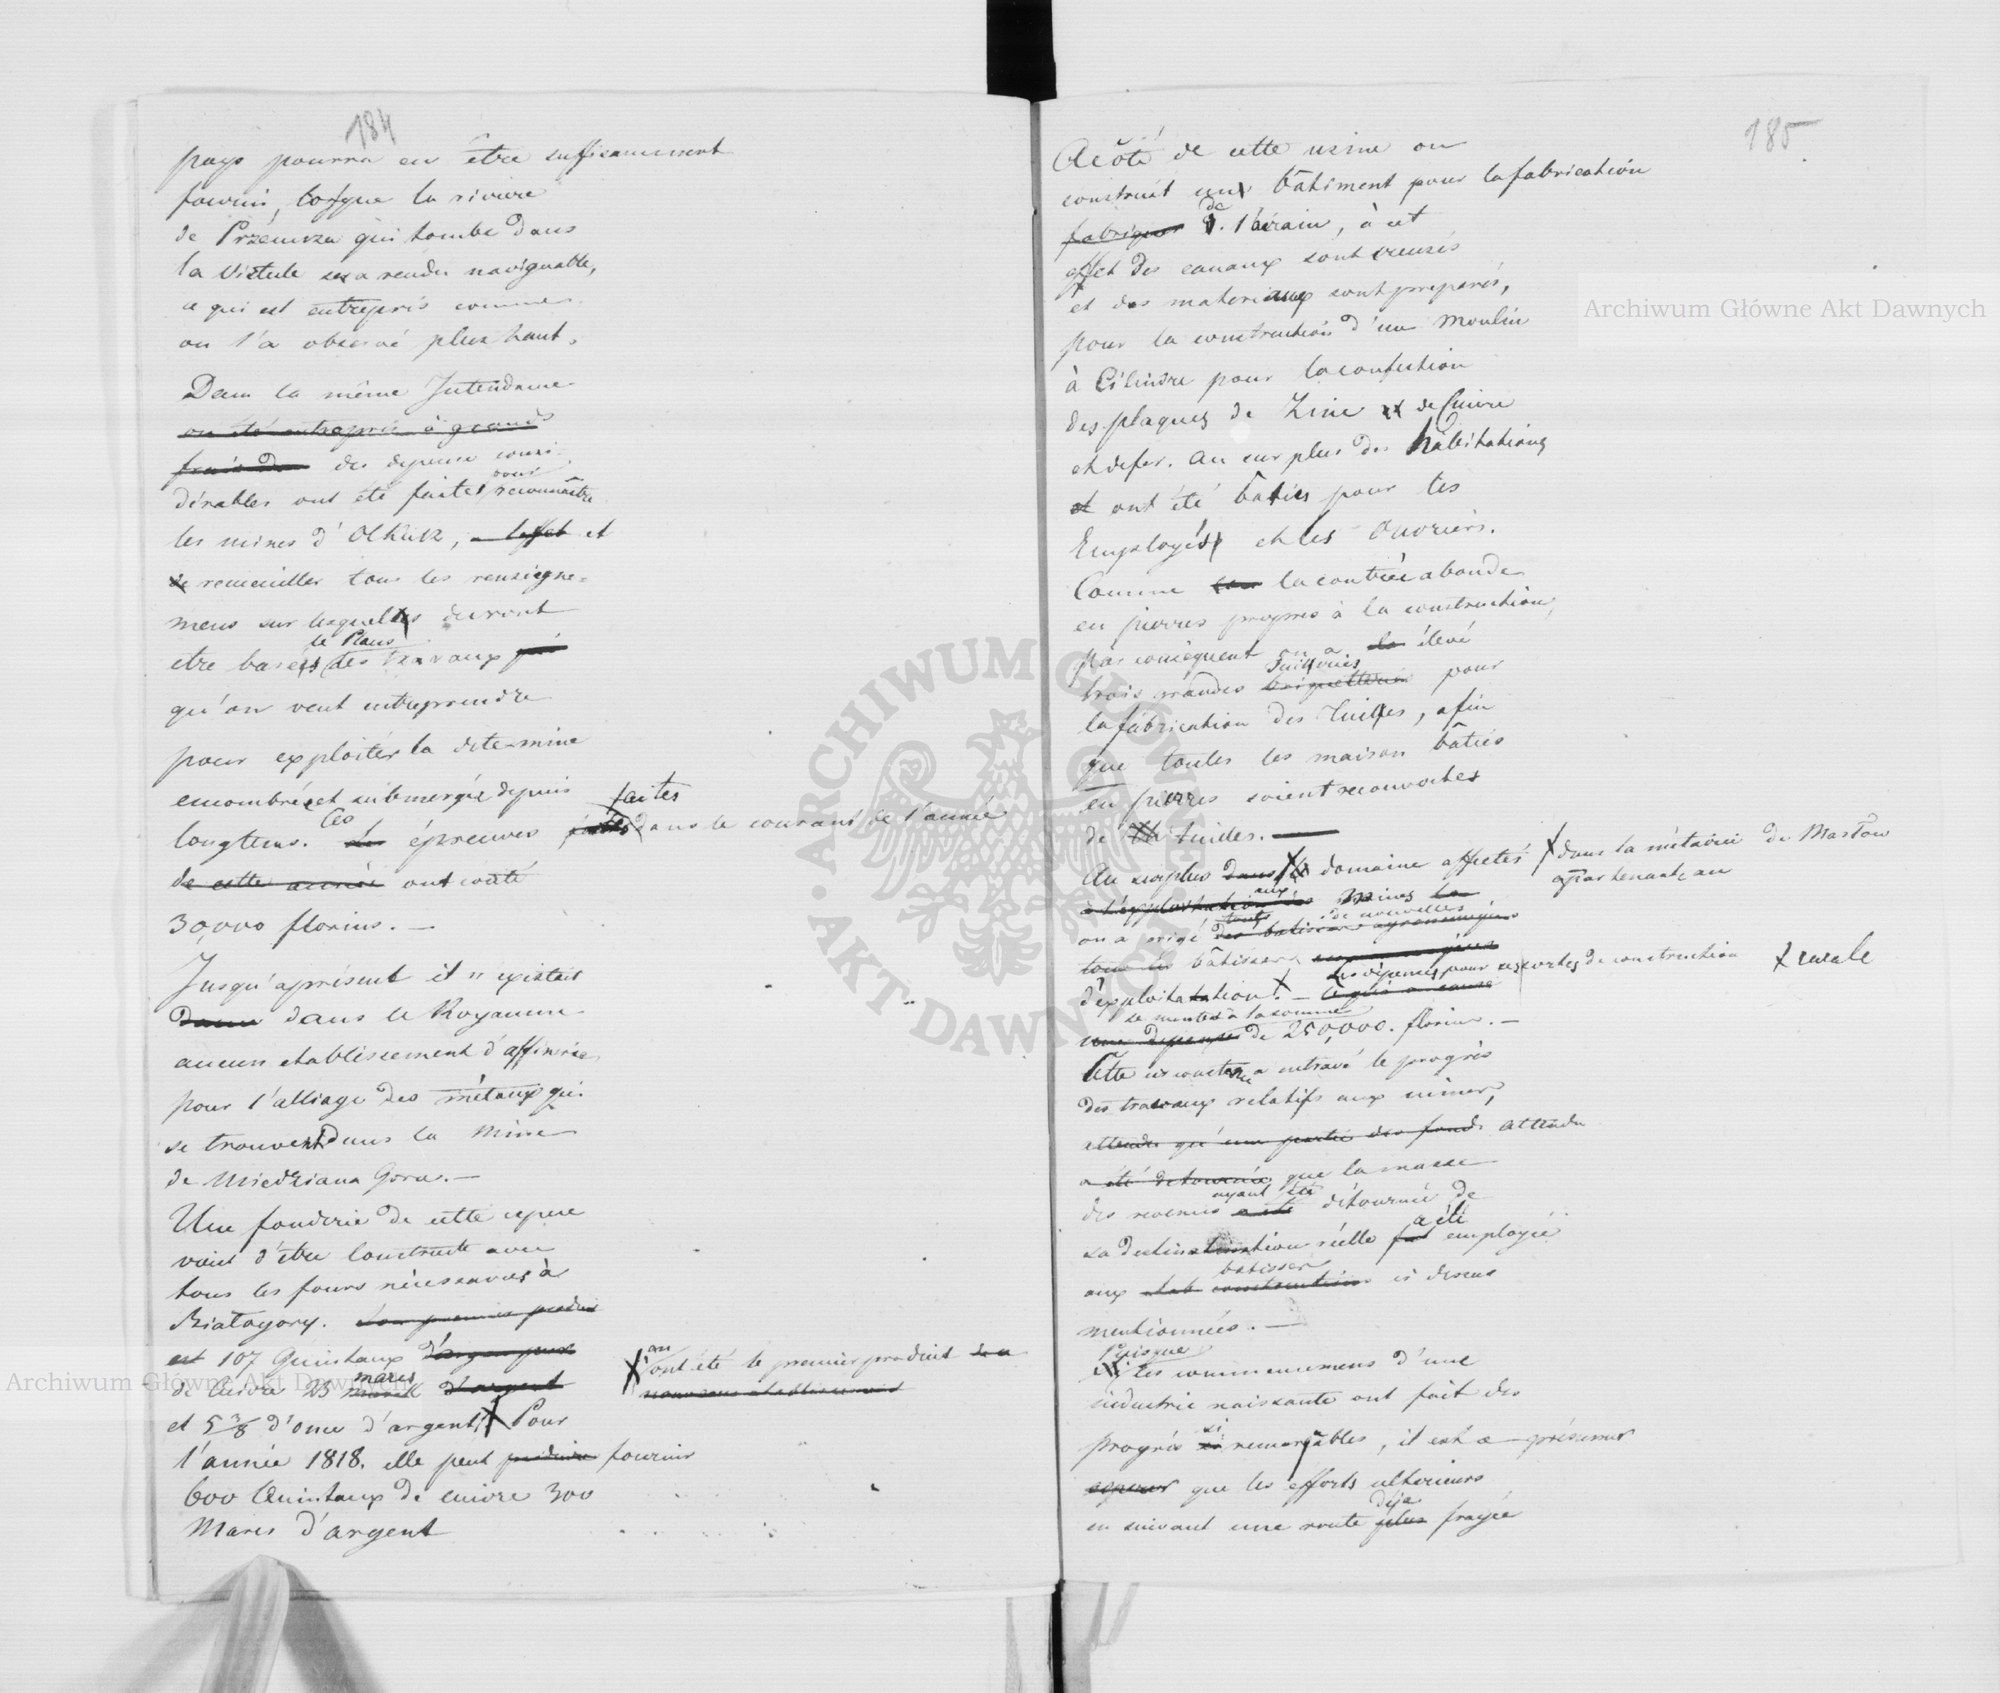 184
pays pourra en être suffisamment
fourni, lorsque la riviere
de Przemsza qui tombe dans
la Vistule sera rendu naviguable,
ce qui est entrepris comme
on l'a observé plus haut.
Dans la même Intendance
ont été entrepris à grands
frais de des depense consi-
dérables ont été faites pour reconnaître
les mines d'Olkusz, et
de recueuiller tous les renseigne=
mens sur lesquels devront
etre basés le Plans des travaux
qu'on veut entreprendre
pour exploiter la dite mine
encombrée et submergée depuis
longtems. Ces épreuves faites dans le courant de l'année
de cette année ont couté
30,000 florins. —
Jusqu'aprésent il n'existait
dans le Royaume
aucun etablissement d'affinerie
pour l'alliage des métaux qui
se trouvent dans la Mine
de Miedziana Gora. —
Une fonderie de cette espece
vient d'être construite avec
tous les fours nécessaires à
Białogory. Son premier produit
est 107 Quintaux d'argent
de Cuivre 23 marcs d'argent
et 5 3/8 d'once d'argent X Pour
X ont été le premier produit de ce
nouveau etablissement
l'année 1818. elle peut produire fournir
600 Quintaux de cuivre 300
Marcs d'argent
185
Acôté de cette usine on
construit un bâtiment pour la fabrication
fabriquer de l'airain, à cet
effet des canaux sont creusés
et des materiaux sont preparés,
pour la construction d'un Moulin
à Cilindre pour la confection
des plaques de Zinc et de Cuivre
et de fer. Au surplus des habitations
et ont été baties pour les
Employés et les Ouvriers.
Comme la contrée abonde
en pierres propres à la construction,
par consequent on a élevé
trois grandes briquetteries Tuilleries pour
la fabrication des Tuiles, afin
que toutes les maison bâties
en pierres soient recouvertes
de tuiles. —
Au surplus dans le domaine affectés
X dans la métairie de Masłow
appartenant au
à l'exploitation des aux mines
on a erigé toutes de nouvelles
bâtisses
d'exploitation. X — Les dépenses pour ces sortes de construction
X rurale
ce qui a causé
se monte à la somme
une depense de 250,000. florins. —
Cette circonstance a entravé le progrès
des travaux relatifs aux mines,
attendu qu'une partie des fonds attendu
a été detournée que la masse
des revenus ayant été a été détournée de
sa destination réelle fut a été employée
aux batisses constructions ci dessus
mentionnées. —
Puisque les commencemens d'une
industrie naissante ont fait des
progrès si remarquables, il est a présumer
esperer que les efforts ulterieurs
en suivant une route plus déja frayée
Archiwum Główne Akt Dawnych
Archiwum Główne Akt Dawnych
ARCHIWUM GŁÓWNE AKT DAWNYCH